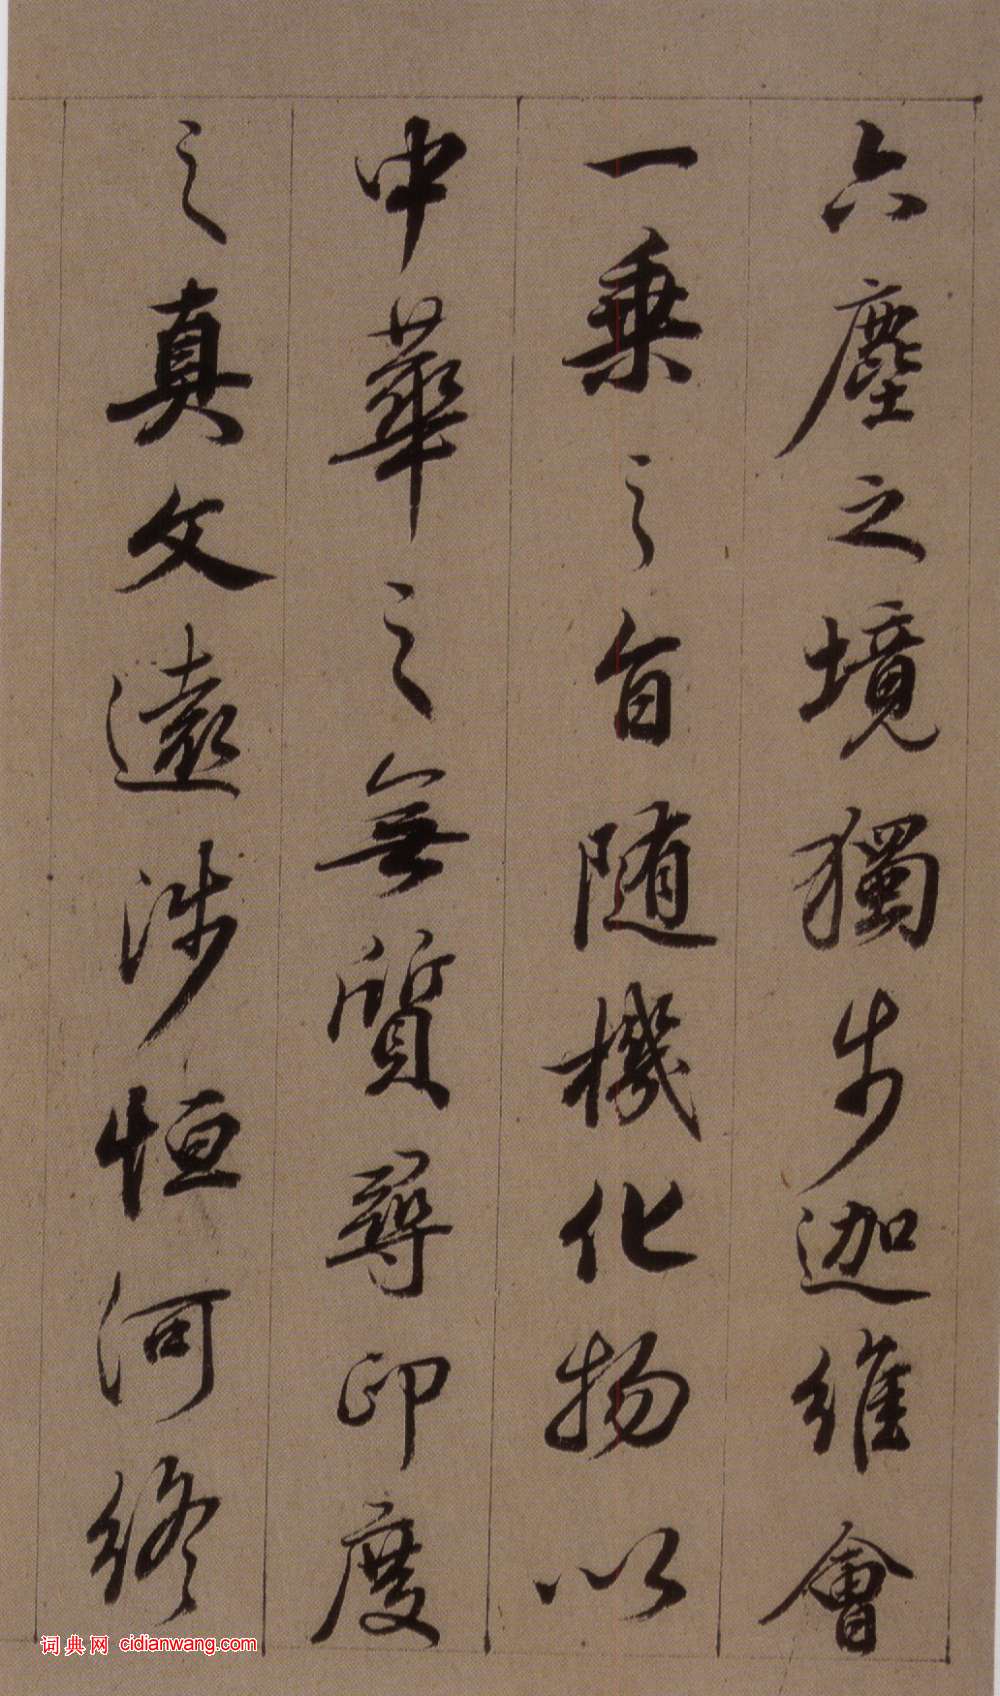 六塵之境獨步迦維會
一乗之旨随機化物以
中華之無質尋印度
之真文遠涉恒河終
词典网 cidianwang.com